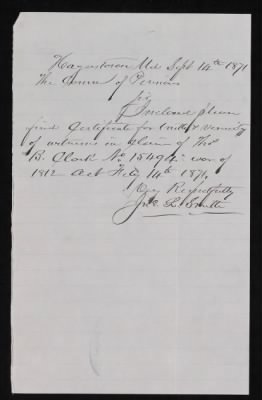 Hagerstown Md Sept 14th 1871
The Comr of Pensions
Sir
Inclosed please
find Certificate for Credit & Veracity
of witnesses in claim of Thos
B. Clark No 15494. war of
1812 Act Feby 14th 1871.
Very Respectfully
Jno. L. Smith